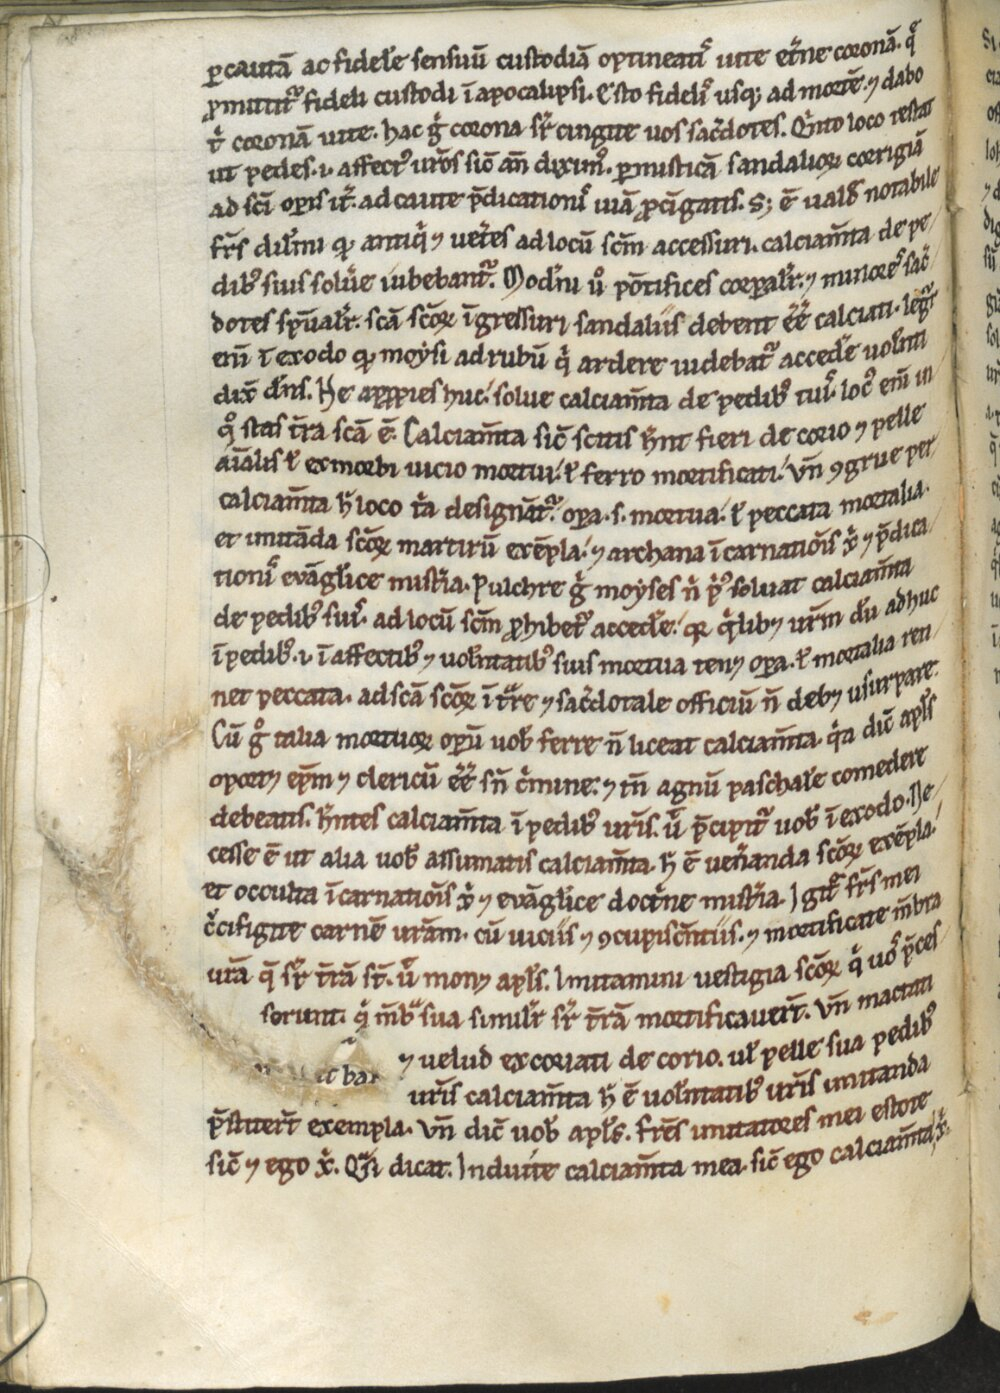 ꝑ cautā ac fidelē sensuū custodiā optineat᷑ uite et̄ne coronā. q̄
ꝓmittit᷑ fideli custodi ī apocalipsi. Esto fidelꝭ usqꝫ ad mortē. ⁊ dabo
t̄ coronā uite. hac g̊ corona sr̄ cingite uos sac̄dotes. Q̊nto loco restat
ut pedes .i. affectꝰ ur̄os sic̄ an̄ diximꝰ. ꝑ misticā sandalioꝝ corrigiā
ad sc̄i oꝑis it̄. ad caute p̄dicationis uiā p̄cīgatis. Sꝫ ē ualde notabile
fr̄s dil̄mi qꝫ antiq̇ ⁊ uet̄es ad locū sc̄m accessuri. calciam̄ta de pe
dibꝰ suis soluē iubebant᷑. Mod̄ni u̇o pōtifices corꝑalit̄. ⁊ minores sac̄
dotes sp̄ualit̄. sc̄a sc̄oꝝ īgressuri sandaliis debent eē̄ calciati. legit᷑
eni ī exodo qꝫ moysi ad rubū q̇ ardere uidebat᷑ accedē uolēti
dix̄ dn̄s. Ne appꝓies huc. solue calciam̄ta de pedibꝰ tuis. locꝰ eni in
q̊ stas t̄ra sc̄a ē. Calciam̄ta sic̄ scitis hn̄t fieri de corio ⁊ pelle
aīalis ł ex morbi uicio mortui. ł ferro mortificati. Vn̄ ꝯgrue per
calciam̄ta h̄ loco t̄a designāt᷑. oꝑa .s. mortua. ł peccata mortalia.
et imitāda sc̄oꝝ martirū exēpla. ⁊ archana īcarnatiōis xp̄i ⁊ p̄dica
tionis evāgl̄ice mist̄ia. Pulchre g̊ moyses n̄ pꝰ soluat calciam̄ta
de pedibꝰ suis. ad locū sc̄m ꝓhibet᷑ accedē. qꝛ q̇libꝫ ur̄m dū adhuc
ī pedibꝰ .i. ī affectibꝰ ⁊ uolūtatibꝰ suis mortua tenꝫ oꝑa. ł mortalia reti
net peccata. ad sc̄a sc̄oꝝ īt̄re ⁊ sac̄dotale officiū n̄ debꝫ usurpare.
Cū g̊ talia mortuoꝝ oꝑū uob̄ ferre n̄ liceat calciam̄ta. q̇a dic̄ apl̄s
oportꝫ ep̄m ⁊ clericū eē̄ sn̄ c̄mine. ⁊ tn̄ agnū paschalē comedere
debeatis. hn̄tes calciam̄ta ī pedibꝰ ur̄is. ū p̄cipit᷑ uob̄ ī exodo. Ne
cesse ē ut alia uob̄ assumatis calciam̄ta. h̄ ē uen̄anda sc̄oꝝ exēpla.
et occulta īcarnatiōis xp̄i ⁊ evāgl̄ice doct̄ne mist̄ia. Igit᷑ fr̄s mei
c̄cifigite carnē ur̄am. cū uiciis ⁊ ꝯcupisc̄ntiis. ⁊ mortificate m̄bra
ur̄a q̄ sr̄ t̄rā st̄. ū monꝫ apl̄s. Imitamini uestigia sc̄oꝝ q̇ uos p̄ces
serunt. q̇ m̄bra sua simil̄r sr̄ t̄rā mortificauert̄. Vn̄ mactati
⁊ uelud excoriati de corio. ul̄ pelle sua pedibꝰ
ur̄is calciam̄ta h̄ ē uolūtatibꝰ ur̄is imitanda
p̄stiter̄t exempla. Vn̄ dic̄ uob̄ apl̄s. Fr̄es imitatores mei estote
sic̄ ⁊ ego xp̄i. Q̊si dicat. Induite calciam̄ta mea. sic̄ ego calciam̄ta xp̄i.